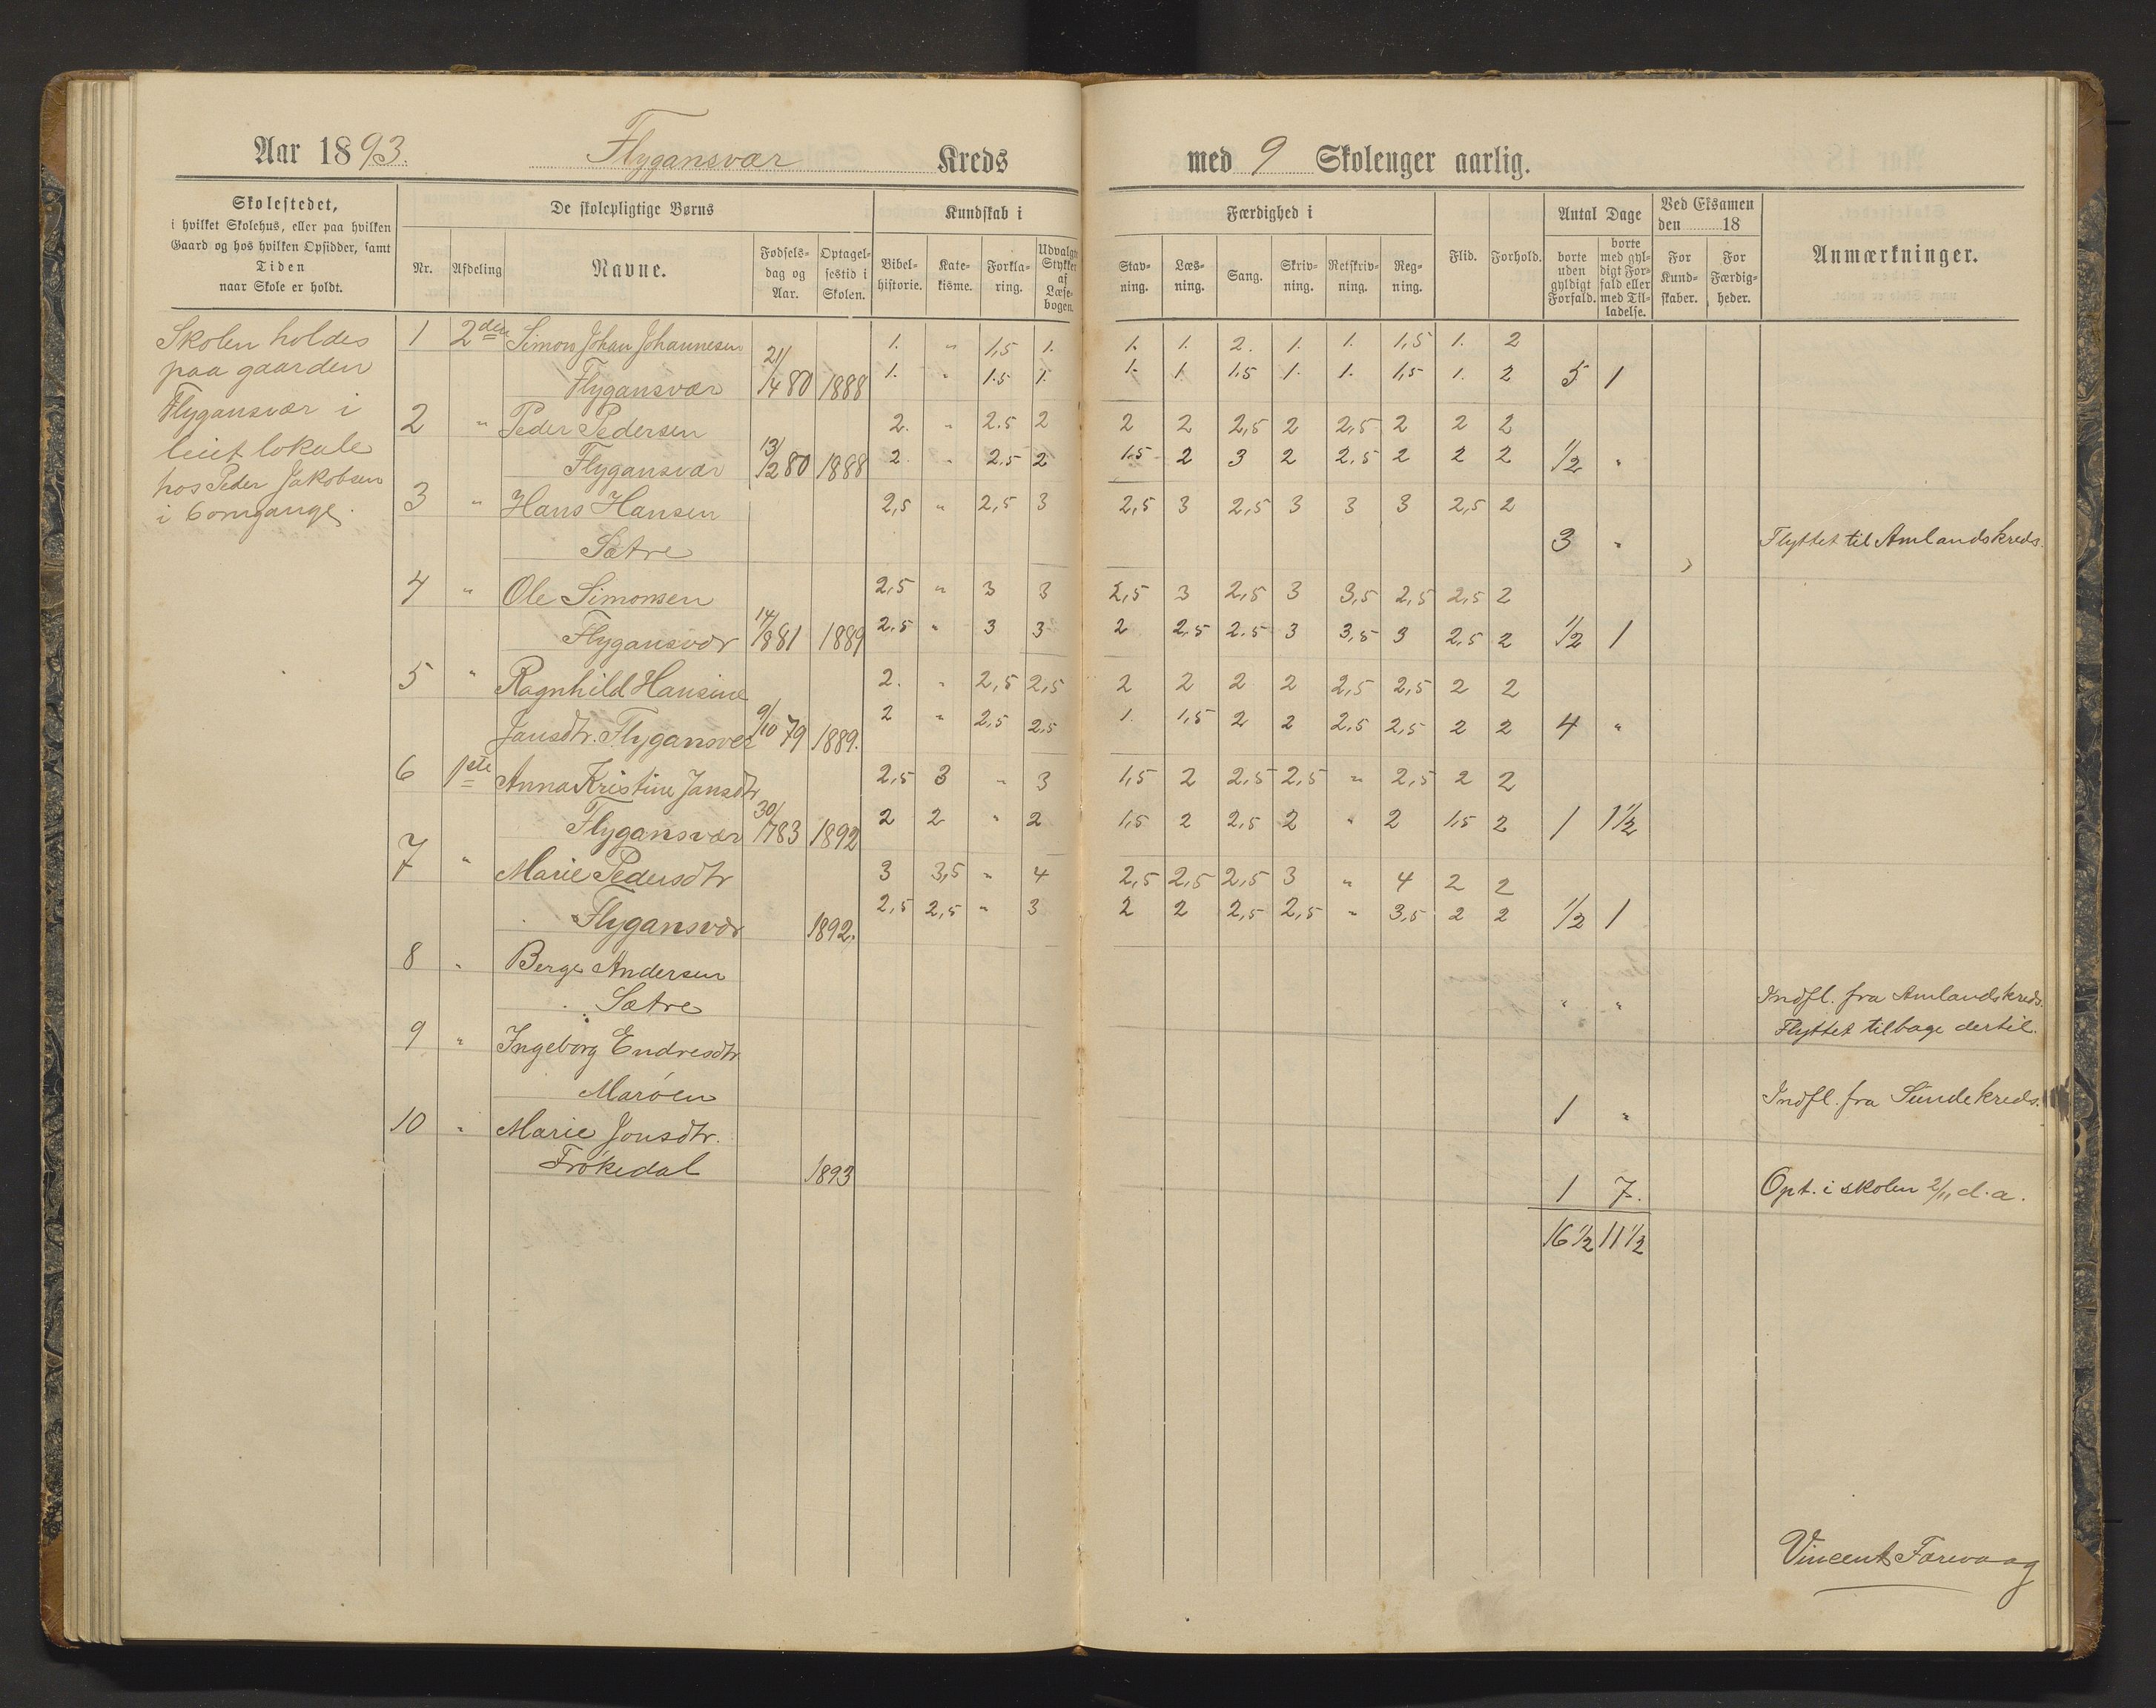 Aar 1893. Flygansvær Kreds med 9 Skoleuger aarlig.
Skolestedet,
i hvilket Skolehus, eller paa hvilken
Gaard og hos hvilken Opsidder, samt
Tiden
naar Skole er holdt.
De skolepligtige Børns
Nr. Afdeling Navne. Fødselsdag og Aar. Optagelsestid i Skolen.
Kundskab i
Bibelhistorie. Katekisme. Forklaring. Udvalgte Stykker af Læsebogen.
Færdighed i
Stavning. Læsning. Sang. Skrivning. Retskrivning. Regning.
Flid. Forhold.
Antal Dage
borte uden gyldigt Forfald. borte med gyldigt Forfald eller med Tilladelse.
Ved Eksamen den 18
For Kundskaber. For Færdigheder.
Anmærkninger.
Skolen holdes
paa gaarden
Flygansvær i
leiet lokale
hos Peder Jakobsen
i 6 omgange.
1 2den Simon Johan Johannesen 1. " 1,5 1. 1. 1. 2. 1. 1. 1,5 1. 2
Flygansvær 21/14 80 1888 1. " 1.5 1. 1. 1 1.5 1. 1. 1,5 1. 2 5 1
2 " Peder Pedersen 2. " 2.5 2 2 2 2,5 2 2,5 2 2 2
Flygansvær 13/2 80 1888 2. " 2.5 2 1.5 2 3 2 2.5 2 2 2 1/2 "
3 " Hans Hansen 2,5 " 2,5 3 2,5 3 2,5 3 3 3 2,5 2
Sætre 3 " Flyttet til Amlandskreds.
4 " Ole Simonsen 2,5 " 3 3 2,5 3 2,5 3 3,5 2,5 2,5 2
Flygansvær 14/8 81 1889 2.5 " 3 3 2 2.5 2.5 3 3,5 3 2.5 2 1/2 1
5 " Ragnhild Hansine 2. " 2,5 2,5 2 2 2 2 2,5 2,5 2 2
Jansdtr. Flygansvær 9/10 79 1889. 2 " 2,5 2,5 1. 1,5 2 2 2.5 2,5 2 2 4 "
6 1ste Anna Kristine Jansdtr 2,5 3 " 3 1,5 2 2,5 2,5 " 2,5 2 2
Flygansvær 30/7 83 1892 2 2 " 2 1,5 2 2,5 2 " 2 1,5 2 1 1 1/2
7 " Marie Pedersdtr 3 3,5 " 4 2,5 2,5 2,5 3 " 4 2 2
Flygansvær 1892. 2,5 2,5 " 3 2 2 2,5 2,5 " 3,5 2 2 1/2 1
8 " Berge Andersen
Sætre " " Indfl. fra Amlandskreds.
Flyttet tilbage dertil.
9 " Ingeborg Endresdtr
Marøen 1 " Indfl. fra Sundekreds.
10 " Marie Jonsdtr.
Frøkedal 1893 1 7. Opt. i skolen 2/11 d.a.
16 1/2 11 1/2
Vincent Farevaag